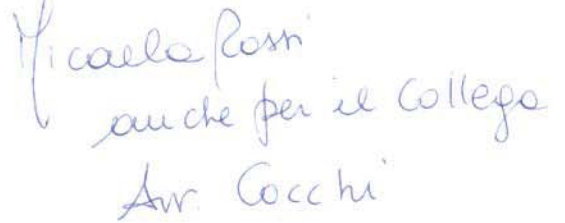 Micaela Rossi
anche per il Collega
Avv. Cocchi